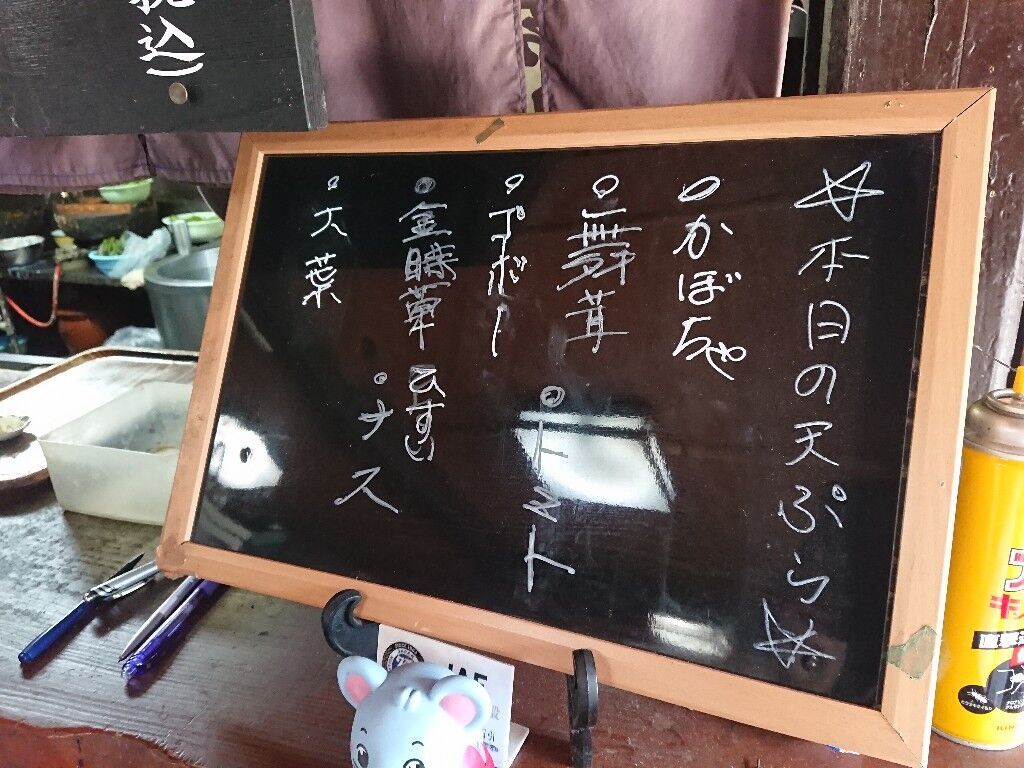 税込)
☆本日の天ぷら☆
○かぼちゃ
○舞茸
○ゴボー
○トマト
○金時草
○ナス
○大葉
JAF
直撃